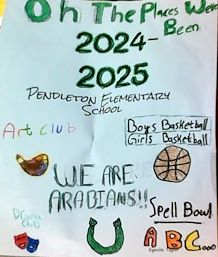 Oh The Places We've
Been
2024-
2025
PENDLETON ELEMENTARY
SCHOOL
Art club
Boys Basketball
Girls Basketball
WE ARE
ARABIANS!!
Spell Bowl
Drama
Club
A B C...